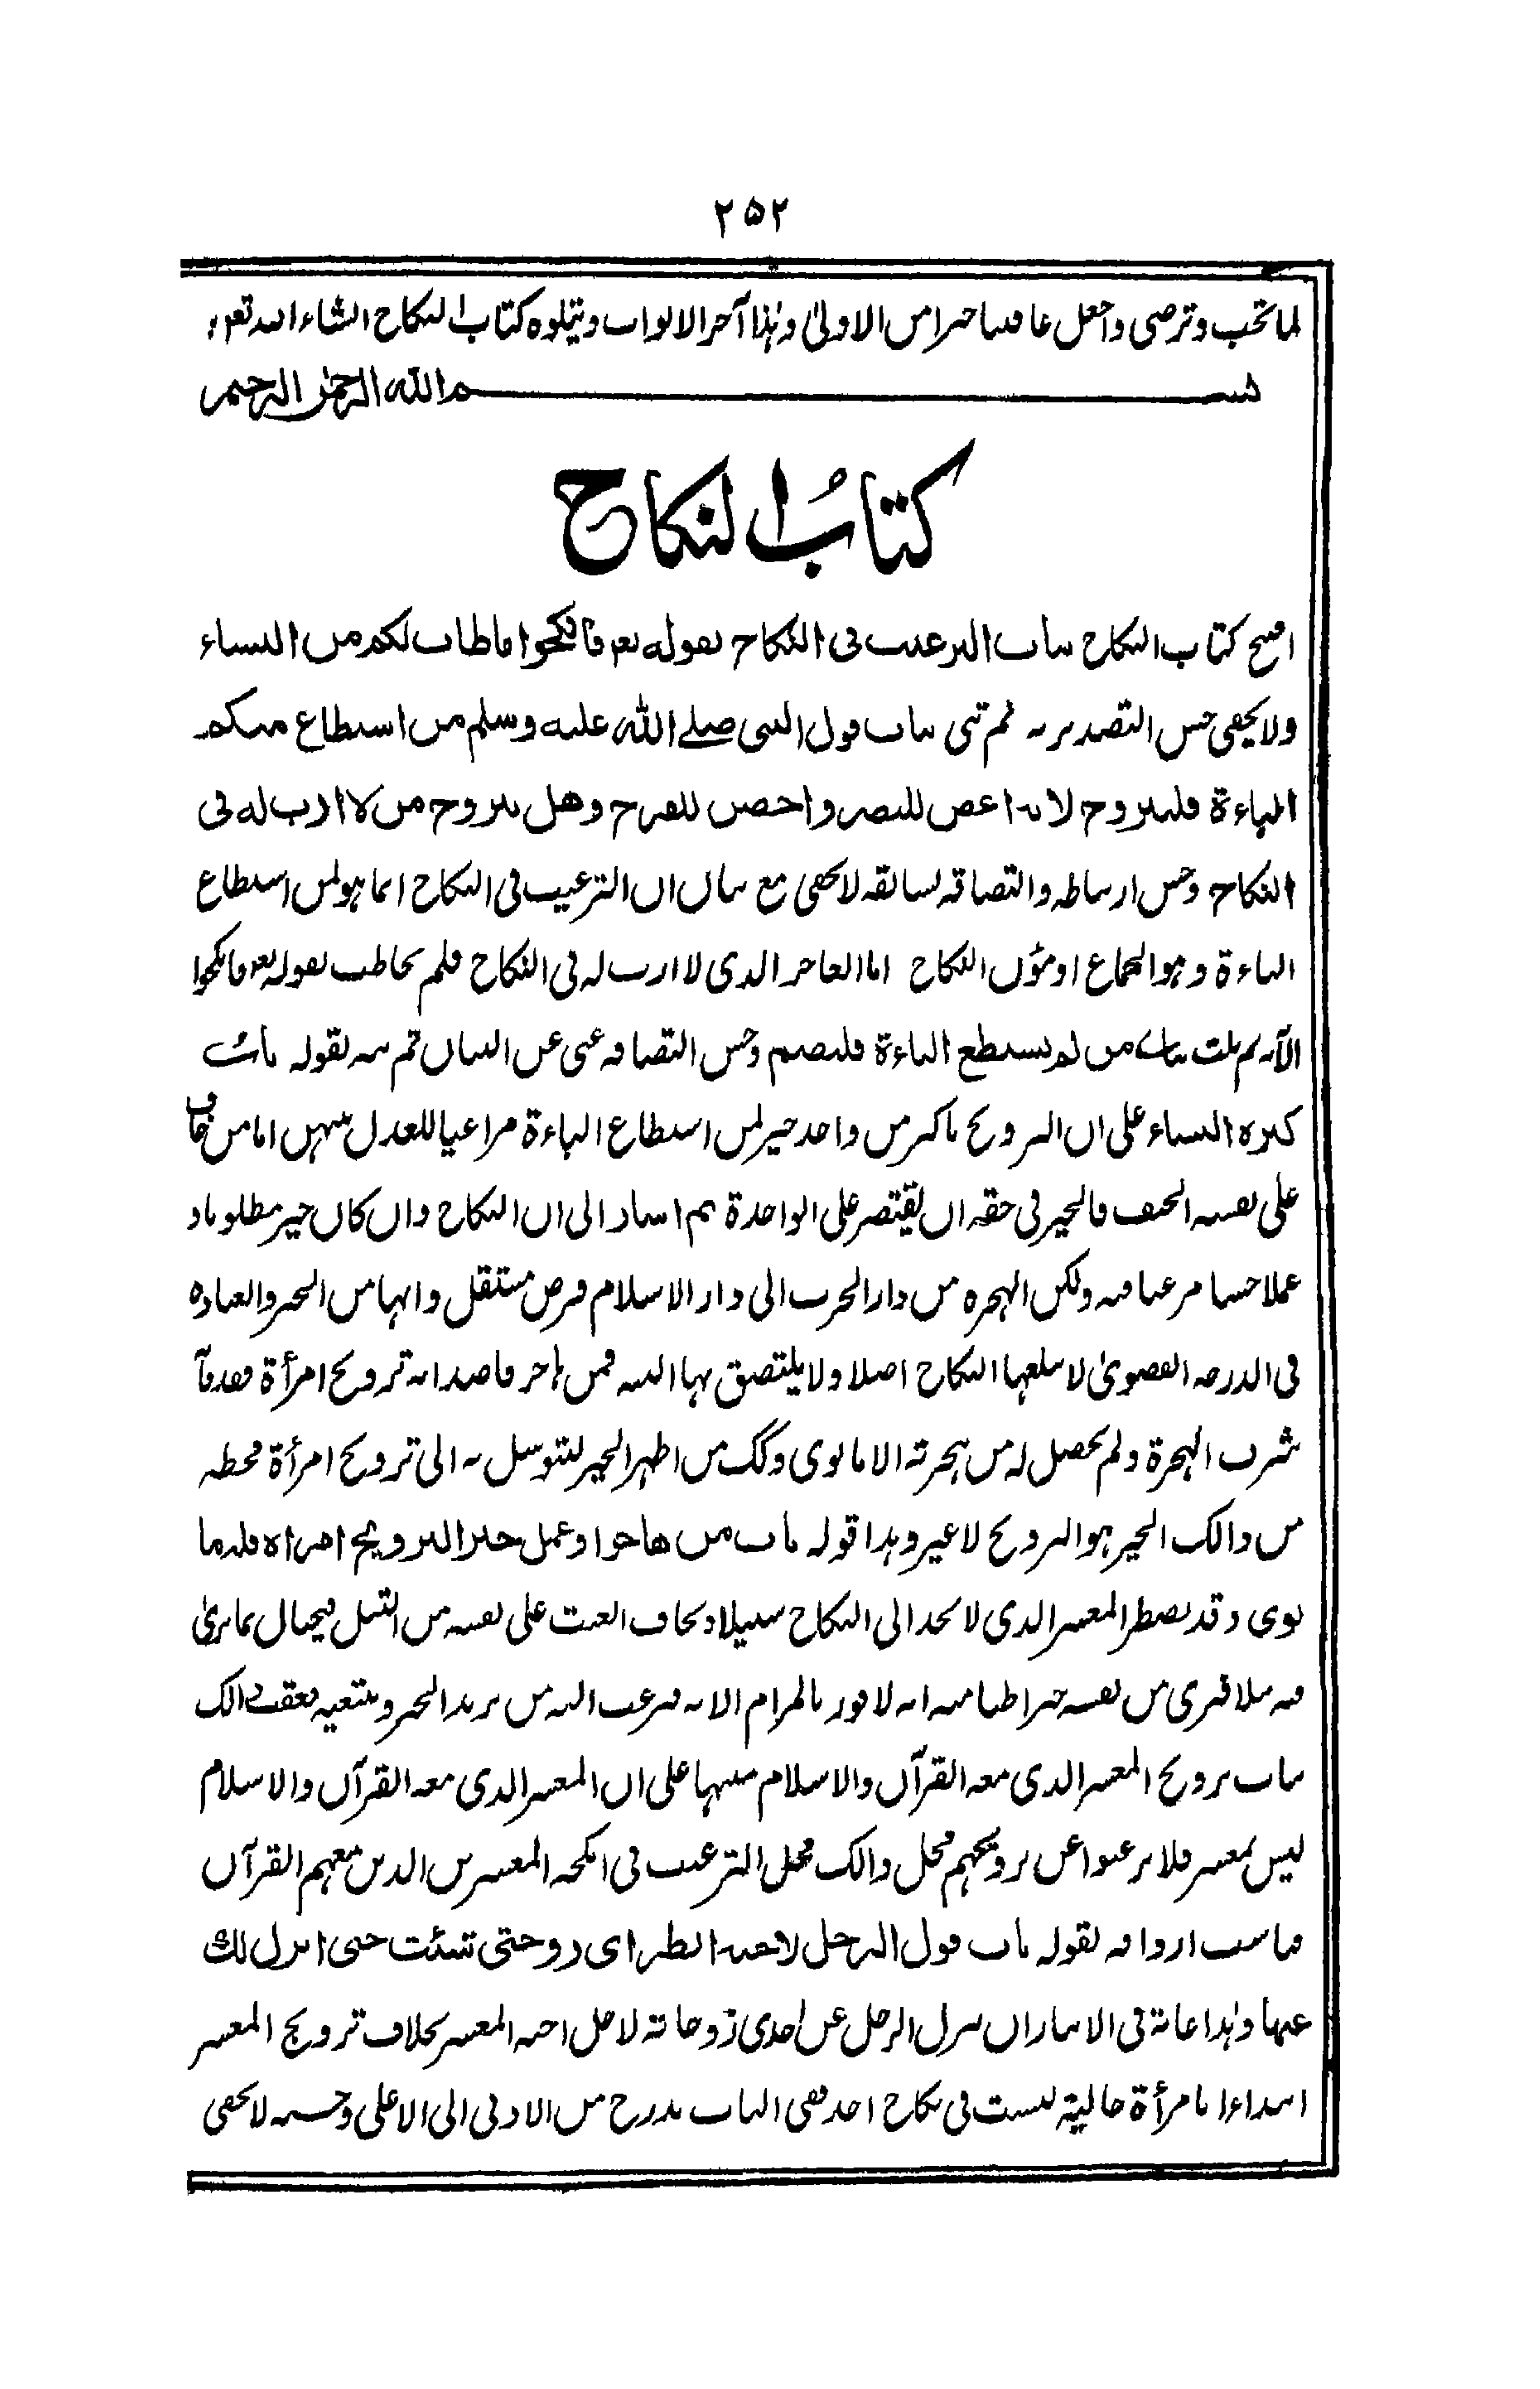 ۲۵۲
لما تحب وترضى واجعل عاقبتنا خيرا من الاولىٰ وہٰذا آخر الابواب ويتلوه كتاب النكاح انشاء الله تعہ،
بسم الله الرحمٰن الرحيم
كتابُ النكاح
افتتح كتاب النكاح بباب الترغيب فى النكاح لقوله تعہ فانكحوا ما طاب لكم من النساء
ولا يخفى حسن التصدير به ثم ثنى بباب قول النبى صلے الله عليه وسلم من استطاع منكم
الباءة فليتزوج لانه اغض للبصر واحصن للفرج وهل يتزوج من لا ارب له فى
النكاح وحسن ارتباطه والتصاقه لسابقه لا يخفى مع بيان ان الترغيب فى النكاح انما ہو لمن استطاع
الباءة وہو الجماع او مؤن النكاح اما العاجز الذى لا ارب له فى النكاح فلم يخاطب بقوله تعہ فانكحوا
الآيه ثم ثلث بباب من لم يستطع الباءة فليصم وحسن التصاقه غنى عن البيان ثم نبه بقوله باب
كثرة النساء على ان التزويج باكثر من واحد خير لمن استطاع الباءة مراعيا للعدل بينہن اما من خاف
على نفسه الحيف فالخير فى حقه ان يقتصر على الواحدة ثم اشار الى ان النكاح وان كان خير مطلوبا و
عملا حسنا مرغبا فيه ولكن الہجره من دار الحرب الى دار الاسلام فرض مستقل وانہا من الخير والعبادة
فى الدرجه القصوىٰ لا يبلغہا النكاح اصلا ولا يلتصق بہا البته فمن ہاجر قاصدا به تزويج امرأة فقد فاته
شرف الہجرة ولم يحصل له من ہجرته الا ما نوى وكك من اظہر الخير ليتوسل به الى تزويج امرأة فحظه
من ذالك الخير ہو التزويج لا غير وہذا قوله باب من هاجر او عمل خيرا لتزويج امرأة فله ما
نوى وقد يضطر المعسر الذى لا يجد الى النكاح سبيلا ويخاف العنت على نفسه من التبتل فيحتال بما يرىٰ
فيه ملا فيرى من نفسه خيرا طنا منه انه لا يفوز بالمرام الا به فيرغب اليه من يريد الخير ويبتغيه فعقب ذالك
بباب تزويج المعسر الذى معه القرآن والاسلام منبها على ان المعسر الذى معه القرآن والاسلام
ليس بمعسر فلا ترغبوا عن تزويجہم فحل ذالك محل الترغيب فى انكحة المعسرين الذين معہم القرآن
فناسب اردافه بقوله باب قول الرجل لاخيه انظر اى زوجتى شئت حتى انزل لك
عنہا وہٰذا غاية فى الايثار ان ينزل الرجل عن احدى زوجاته لاجل اخيه المعسر بخلاف تزويج المعسر
ابتداءا بامرأة خالية ليست فى نكاح احد ففى الباب تدرج من الادنى الى الاعلى وحسنه لا يخفى